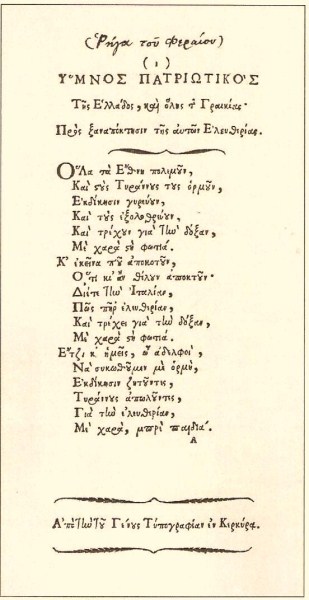 (Ρήγα τοῦ Φεραίου)
(1)
ΥΜΝΟΣ ΠΑΤΡΙΩΤΙΚΟΣ
Τῆς Ελλάδος, καὶ ὅλης τ̃ Γραικίας·
Πρὸς ξαναπόκτησιν τῆς αὐτῶν Ελευθερίας.
Ολα τὰ Εθνη πολεμοῦν,
Καὶ στοὺς Τυράννους τους ὁρμοῦν,
Εκδίκησιν γυρεύουν,
Καὶ τοὺς εξολοθρεύουν,
Καὶ τρέχουν γιὰ τὴν δόξαν,
Μὲ χαρὰ στὴ φωτιά.
Κ' ἐκεῖνα ποῦ ἀποκοτοῦν,
Ο,τι κι' ἂν θέλουν ἀποκτοῦν·
Διέτε τὴν Ιταλίαν,
Πῶς πῆρ' ἐλευθερίαν,
Καὶ τρέχει γιὰ τὴν δόξαν,
Μὲ χαρὰ στὴ φωτιά.
Ετζι κ' ἡμεῖς, ὦ ἀδελφοὶ,
Νὰ συκωθοῦμεν μὲ ὁρμὴ,
Εκδίκησιν ζητῶντες,
Τυράννους ἀπωλῶντες,
Γιὰ τὴν ἐλευθερίαν,
Μὲ χαρὰ, μπρὲ παιδιά.
Α
Απὸ τὴν τοῦ Γένους Τυπογραφίαν ἐν Κερκύρᾳ.